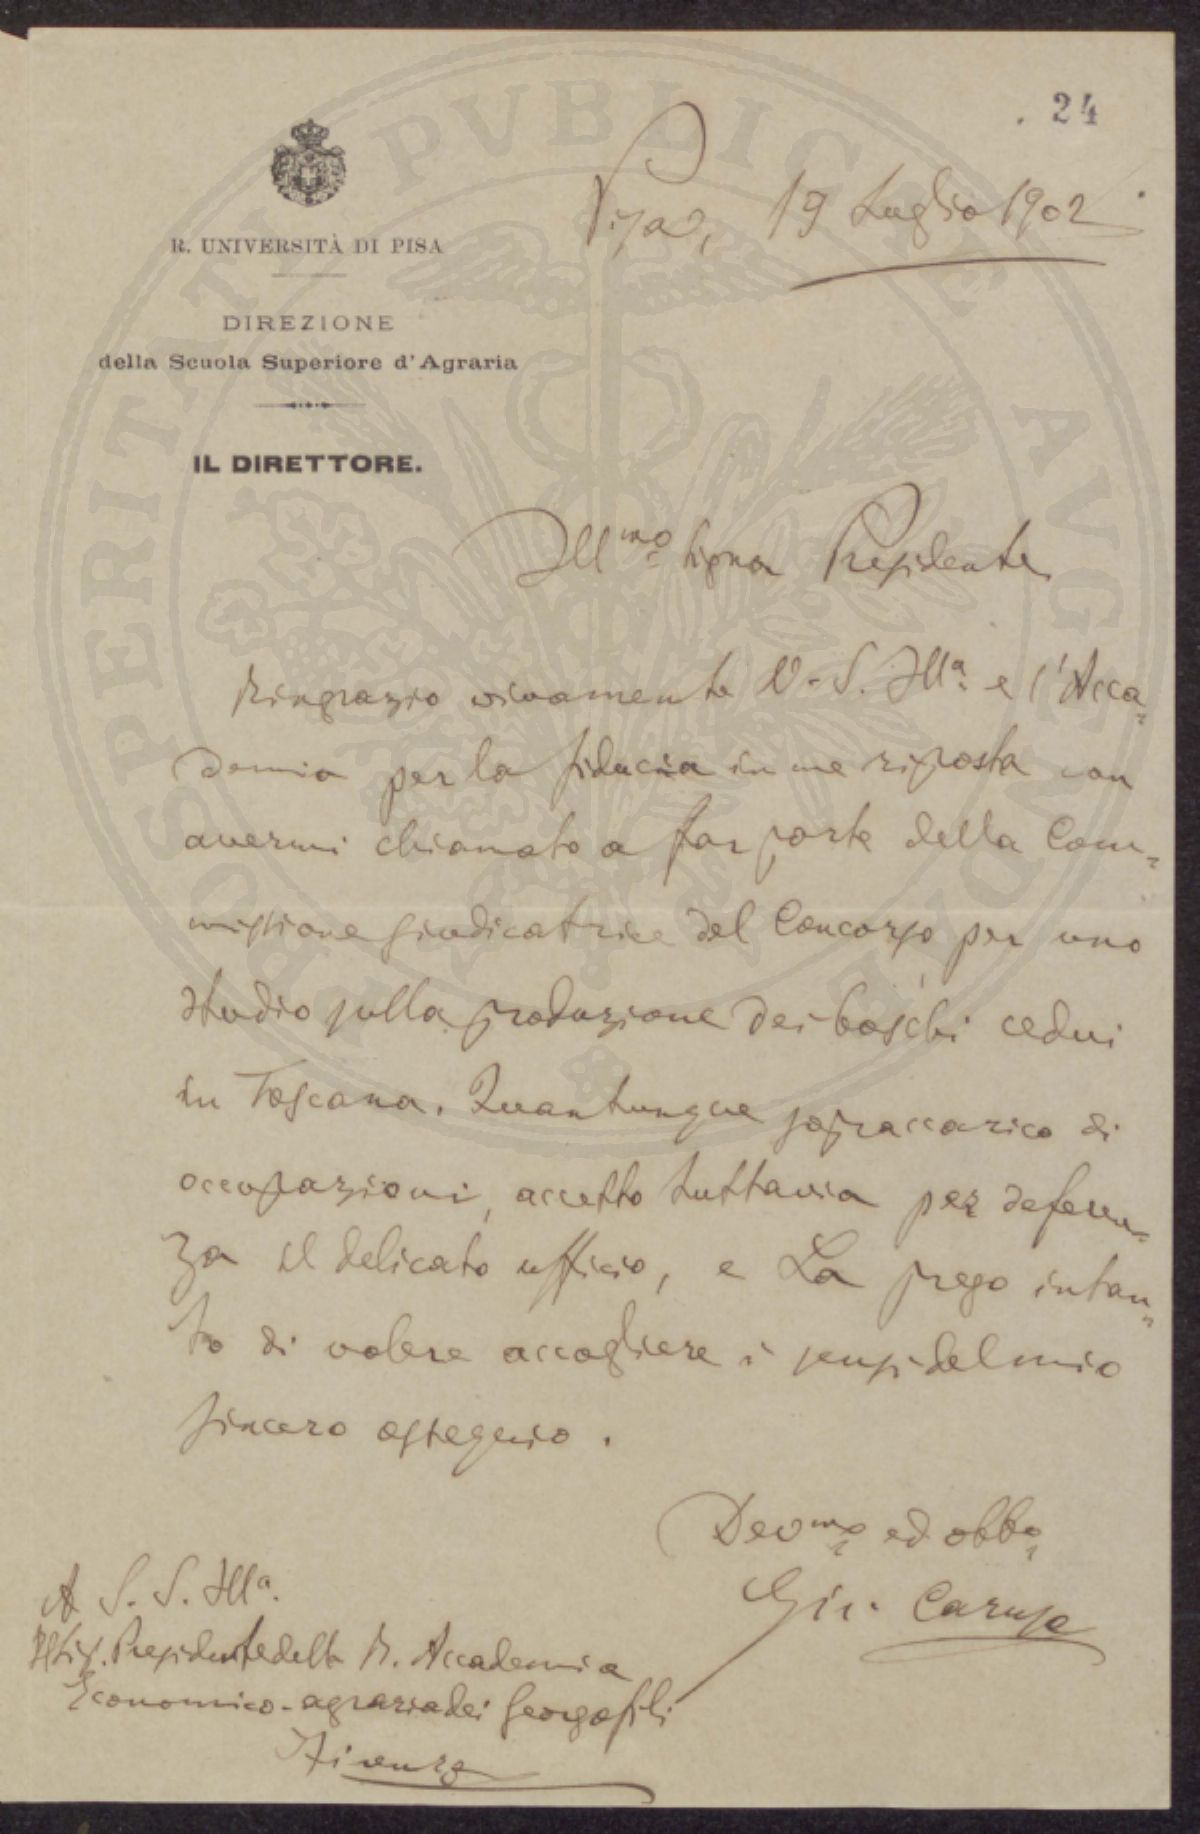 24
R. UNIVERSITÀ DI PISA
DIREZIONE
della Scuola Superiore d'Agraria
IL DIRETTORE.
Pisa, 19 Luglio 1902
Ill.mo Signor Presidente
Ringrazio vivamente V. S. Ill.a e l'Acca=
demia per la fiducia in me riposta con
avermi chiamato a far parte della Com=
missione giudicatrice del Concorso per uno
studio sulla produzione dei boschi cedui
in Toscana. Quantunque sopraccarico di
occupazioni, accetto tuttavia per deferen=
za il delicato ufficio, e La prego intan=
to di volere accogliere i sensi del mio
sincero ossequio.
Dev.mo ed obb.o
Gir. Caruso
A S. S. Ill.a
Presidente della R. Accademia
Economico-agraria dei Georgofili
Firenze
PROSPERITATI PVBLICAE AVGENDAE